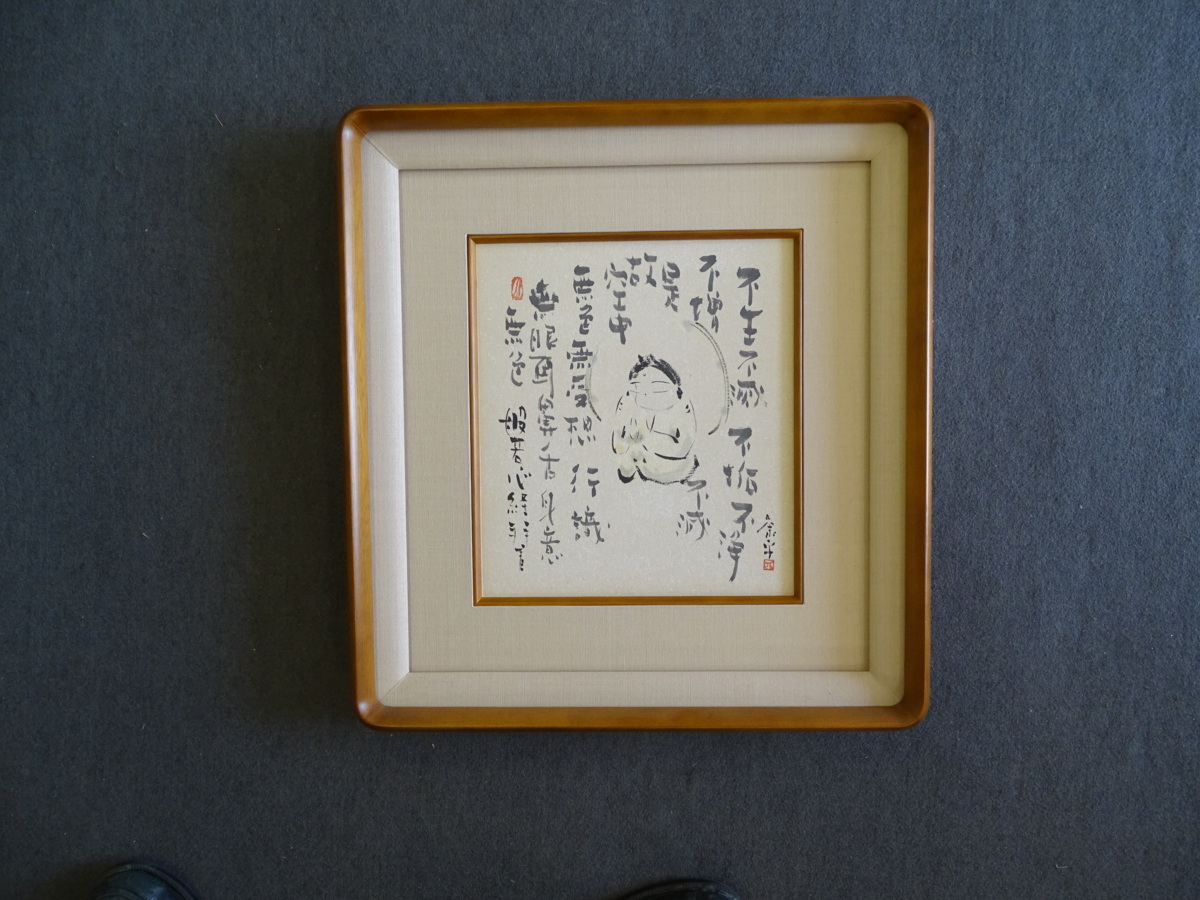 不生不滅不垢不浄
不増
不減
是
故
空中
無色無受想行識
無眼耳鼻舌身意
無色
般若心経